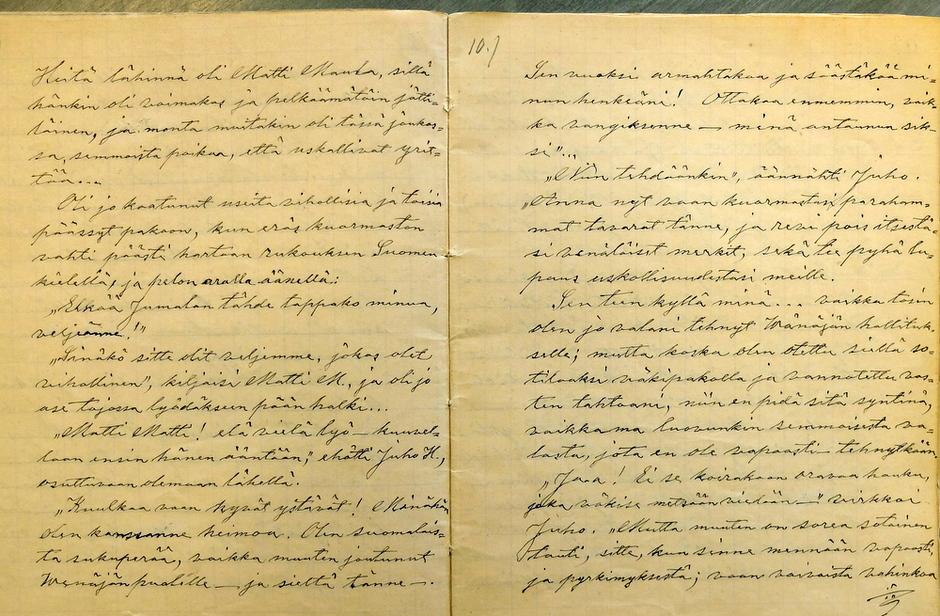 Heitä lähinnä oli Matti Mauka, sillä
hänkin oli voimakas ja pelkäämätöin jätti-
läinen, ja monta muitakin oli tässä joukos-
sa, semmoista poikaa, että uskallivat yrit-
tää...
Oli jo kaatunut useita vihollisia ja toisia
päässyt pakoon, kun eräs kuormaston
vahti päästi hartaan rukouksen Suomen
kielellä, ja pelon aralla äänellä:
„Elkää Jumalan tähde tappako minua,
veljeänne!"
„Sinäkö sitte olit veljemme, jokas olet
vihollinen", kiljaisi Matti M., ja oli jo
ase tojossa lyödäkseen pään halki...
„Matti Matti! elä vielä lyö — kuunnel-
laan ensin hänen ääntään," ehätti Juho K.,
osuttuvaan olemaan lähellä.
„Kuulkaa vaan hyvät ystävät! Minähän
olen kanssanne heimoa. Olen suomalais-
ta sukuperää, vaikka muuten joutunut
Wenäjän puolille — ja sieltä tänne —.
10.)
Sen vuoksi armahtakaa ja säästäkää mi-
nun henkeäni! Ottakaa ennemmin, vaik-
ka vangiksenne — minä antaunun sik-
si"...
„Niin tehdäänkin", äännähti Juho.
„Anna nyt vaan kuormastasi parahim-
mat tavarat tänne, ja revi pois itsestä-
si venäläiset merkit, sekä tee pyhä lu-
paus uskollisuudestasi meille.
Sen teen kyllä minä... vaikka tosin
olen jo valani tehnyt Wenäjän hallituk-
selle; mutta koska olen otettu sieltä so-
tilaaksi väkipakolla ja vannotettu vas-
ten tahtoani, niin en pidä sitä syntinä,
vaikka ma luovunkin semmoisesta va-
lasta, jota en ole vapaasti tehnytkään.
„Jaa! Ei se koirakaan oravaa hauku,
joka väkise metsään viedään —" virkkoi
Juho. „Mutta muuten on sorea sotainen
tauti, sitte, kun sinne mennään vapaasti,
ja pyrkimyksestä; vaan vaivaista vahinkoa